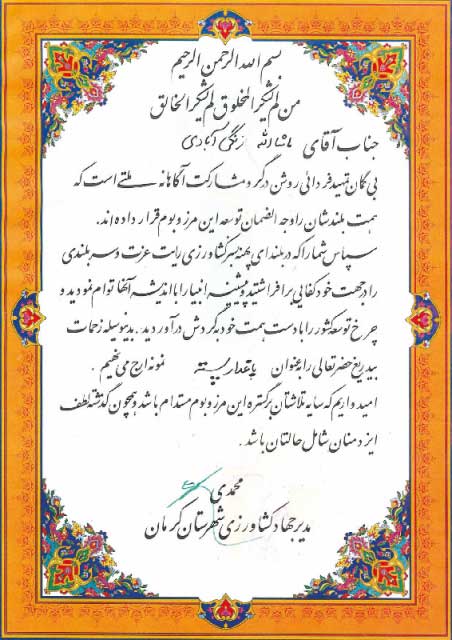 بسم الله الرحمن الرحیم
من لم یشکر المخلوق لم یشکر الخالق
جناب آقای ماشاالله زنگی آبادی
بی گمان تمهید فردائی روشن در گرو مشارکت آگاهانه ملتے است که
همت بلندشان را وجه الضمان توسعه این مرز و بوم قرار داده اند.
سپاس شما را که در بلندای پهنه سبز کشاورزی رایت عزت و سربلندی
را در جهت خودکفایی برافراشتید و پیشینه انبیار را با اندیشه آنها توام نمودید و
چرخ توسعه کشور را با دست همت خود به گردش درآورديد. بدینوسیله زحمات
بیدریغ حضرتعالی را بعنوان باغدار پسته نمونه ارج می نهیم.
امیدواریم که سایه تلاشتان بر گستره این مرز و بوم مستدام باشد و همچون گذشته لطف
ایزد منان شامل حالتان باشد.
محمدی
مدیر جهاد کشاورزی شهرستان کرمان